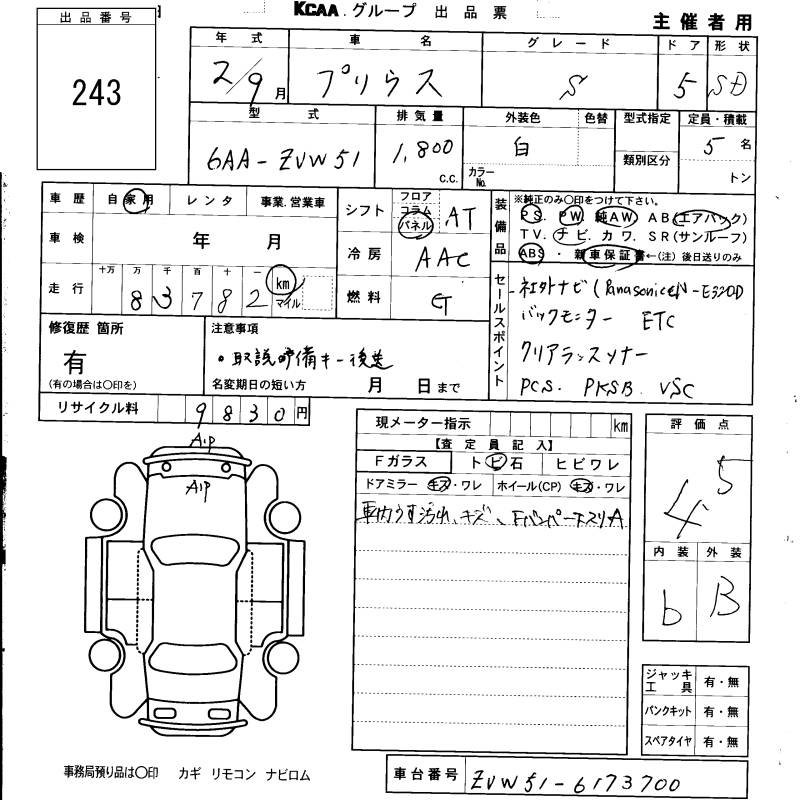 KCAA グループ 出品票
主催者用
出品番号
243
年式 車名 グレード ドア 形状
2/9月 プリウス S 5 SD
型式 排気量 外装色 色替 型式指定 定員・積載
6AA-ZVW51 1,800 c.c. 白 カラーNo. 類別区分 5名 トン
車歴 自家用 レンタ 事業.営業車
車検 年 月
走行 十万 万 千 百 十 一
83782 km マイル
シフト フロア コラム パネル AT
冷房 AAC
燃料 G
装備品 ※純正のみ〇印をつけて下さい。
PS. PW 純AW AB(エアバック)
TV. ナビ. カワ. SR(サンルーフ)
ABS ・ 新車保証書←(注)後日送りのみ
セールスポイント
社外ナビ(Panasonic CN-E320D
バックモニター ETC
クリアランスソナー
PCS. PKSB. VSC
修復歴 箇所
有
(有の場合は〇印を)
注意事項
。取説 予備キー後送
名変期日の短い方 月 日まで
リサイクル料 9830円
現メーター指示 km
【査定員記入】
Fガラス トビ石 ヒビワレ
ドアミラー キズ・ワレ ホイール(CP) キズ・ワレ
車内うす汚れ、キズ、Fバンパー下スリA
A1P
A1P
評価点
4.5
内装 外装
b B
ジャッキ工具 有・無
パンクキット 有・無
スペアタイヤ 有・無
事務局預り品は〇印 カギ リモコン ナビロム
車台番号 ZVW51-6173700